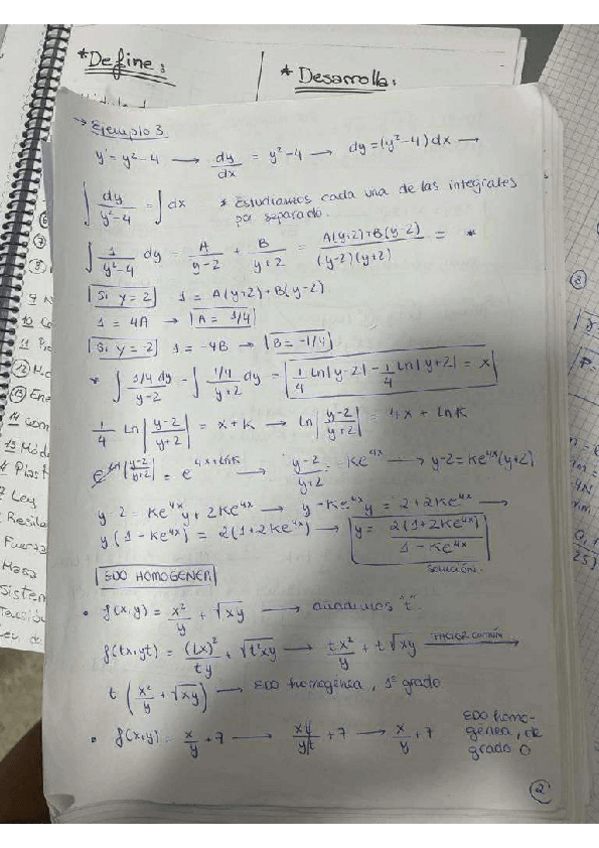 *Define:
* Desarrolla:
→ Ejemplo 3.
y' = y²-4 → dy/dx = y²-4 → dy = (y²-4) dx →
∫ dy/(y²-4) = ∫ dx * Estudiamos cada una de las integrales
por separado.
∫ 1/(y²-4) dy = A/(y-2) + B/(y+2) = (A(y+2)+B(y-2))/((y-2)(y+2)) = *
Si y=2 1 = A(y+2)+B(y-2)
1 = 4A → A = 1/4
Si y=-2 1 = -4B → B = -1/4
* ∫ (1/4 dy)/(y-2) - ∫ (1/4)/(y+2) dy = 1/4 ln|y-2| - 1/4 ln|y+2| = x
1/4 ln|(y-2)/(y+2)| = x + K → ln|(y-2)/(y+2)| = 4x + lnK
e^(ln|(y-2)/(y+2)|) = e^(4x+lnK) → (y-2)/(y+2) = Ke^(4x) → y-2 = Ke^(4x)(y+2)
y-2 = Ke^(4x)y + 2Ke^(4x) → y - Ke^(4x)y = 2+2Ke^(4x) →
y(1-Ke^(4x)) = 2(1+2Ke^(4x)) → y = 2(1+2Ke^(4x))/(1-Ke^(4x))
solución.
EDO HOMOGENEA
• f(x,y) = x²/y + √xy → añadimos "t".
f(tx,yt) = (tx)²/ty + √t²xy → tx²/y + t√xy FACTOR COMÚN →
t (x²/y + √xy) → EDO homogénea, 1º grado
• f(x,y) = x/y + 7 → xt/yt + 7 → x/y + 7 EDO homo-
génea, de
grado 0
2